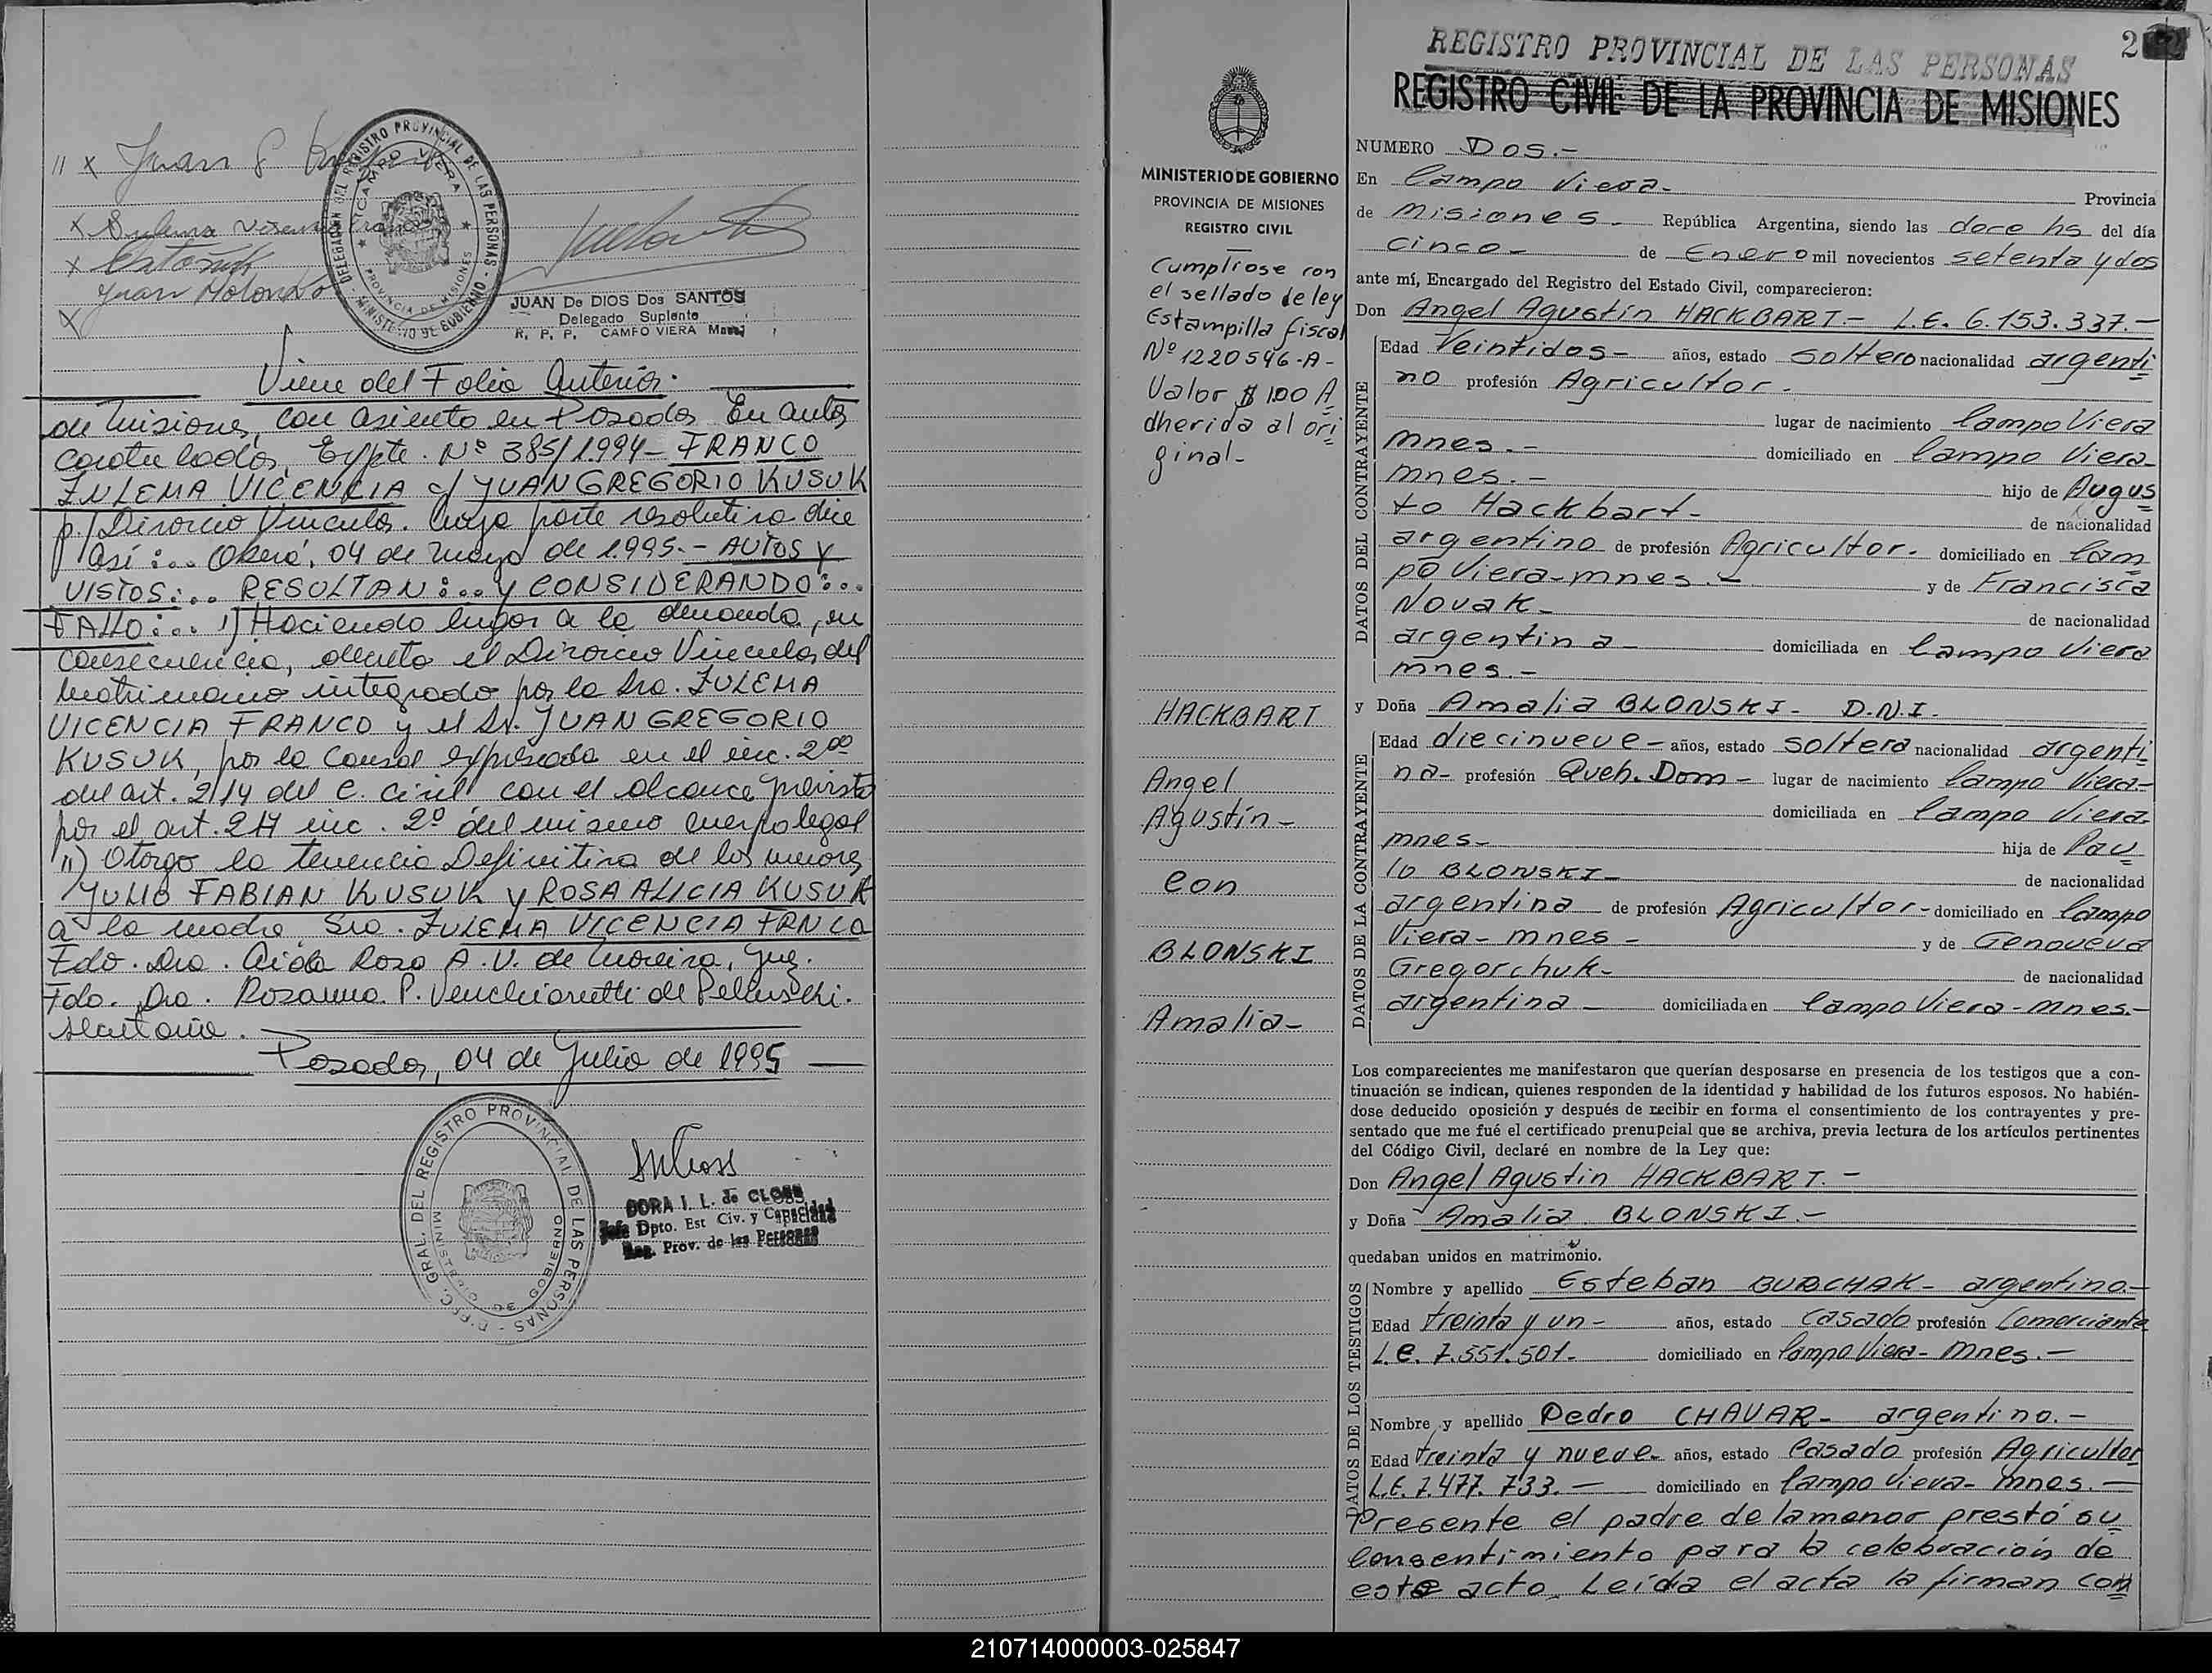 // x Juan G
x Sulema Vicencia Franco
x
Juan
x
DELEGACION DEL REGISTRO PROVINCIAL DE LAS PERSONAS - MINISTERIO DE GOBIERNO
CAMPO VIERA
PROVINCIA DE MISIONES
JUAN De DIOS Dos SANTOS
Delegado Suplente
R. P. P. CAMPO VIERA Mnes
Viene del Folio Anterior.
de Misiones, con asiento en Posadas En autos
caratulados, Expte. Nº 385/1.994- FRANCO
ZULEMA VICENCIA c/ JUAN GREGORIO KUSUK
p./ Divorcio Vincular. Cuya parte resolutiva dice
Así:.. Oberá, 04 de mayo de 1.995.- AUTOS Y
VISTOS:.. RESULTAN:.. y CONSIDERANDO:..
FALLO:.. 1) Haciendo lugar a la demanda, en
consecuencia, decreto el Divorcio Vincular del
Matrimonio integrado por la Sra. ZULEMA
VICENCIA FRANCO y el Sr. JUAN GREGORIO
KUSUK, por la causal expresada en el inc. 2do
del art. 214 del C. Civil con el alcance previsto
por el art. 217 inc. 2º del mismo cuerpo legal
11) Otorgo la tenencia Definitiva de los menores
JULIO FABIAN KUSUK y ROSA ALICIA KUSUK
a la madre Sra. ZULEMA VICENCIA FRNCO
Fdo. Dra. Aida Rosa A. V. de Moreira, Juez.
Fdo. Dra. Rosanna P. Venchiarutti de
secretaria.
Posadas, 04 de Julio de 1995
DIREC. GRAL. DEL REGISTRO PROVINCIAL DE LAS PERSONAS
MINISTERIO DE GOBIERNO
DORA I. L. de CLOSS
Jefe Dpto. Est Civ. y Capacidad
Reg. Prov. de las Personas
MINISTERIO DE GOBIERNO
PROVINCIA DE MISIONES
REGISTRO CIVIL
Cumpliose con
el sellado de ley
Estampilla fiscal
Nº 1220546-A-
Valor $ 1.00 A
dherida al ori
ginal-
HACKBART
Angel
Agustín-
con
BLONSKI
Amalia-
2
REGISTRO PROVINCIAL DE LAS PERSONAS
REGISTRO CIVIL DE LA PROVINCIA DE MISIONES
NUMERO Dos.-
En Campo Viera- Provincia
de Misiones- República Argentina, siendo las doce hs del día
cinco- de Enero mil novecientos setenta y dos
ante mí, Encargado del Registro del Estado Civil, comparecieron:
Don Angel Agustín HACKBART- L.E. 6.153.337.-
DATOS DEL CONTRAYENTE
Edad Veintidos- años, estado soltero nacionalidad argenti
no profesión Agricultor-
lugar de nacimiento Campo Viera
mnes.- domiciliado en Campo Viera-
mnes.- hijo de Augus
to Hackbart- de nacionalidad
argentino de profesión Agricultor- domiciliado en Cam
po Viera-mnes.- y de Francisca
Novak- de nacionalidad
argentina- domiciliada en Campo Viera
mnes.-
y Doña Amalia BLONSKI- D.N.I.
DATOS DE LA CONTRAYENTE
Edad diecinueve- años, estado soltera nacionalidad argenti
na- profesión Queh. Dom- lugar de nacimiento Campo Viera-
domiciliada en Campo Viera-
mnes- hija de Pau
lo BLONSKI- de nacionalidad
argentina de profesión Agricultor- domiciliado en Campo
Viera- mnes- y de Genoveva
Gregorchuk- de nacionalidad
argentina- domiciliada en Campo Viera-mnes.-
Los comparecientes me manifestaron que querían desposarse en presencia de los testigos que a con-
tinuación se indican, quienes responden de la identidad y habilidad de los futuros esposos. No habién-
dose deducido oposición y después de recibir en forma el consentimiento de los contrayentes y pre-
sentado que me fué el certificado prenupcial que se archiva, previa lectura de los artículos pertinentes
del Código Civil, declaré en nombre de la Ley que:
Don Angel Agustin HACKBART.-
y Doña Amalia BLONSKI.-
quedaban unidos en matrimonio.
DATOS DE LOS TESTIGOS
Nombre y apellido Esteban BURCHAK- argentino-
Edad treinta y un- años, estado casado profesión Comerciante
L.E. 7.551.501- domiciliado en Campo Viera- Mnes.-
Nombre y apellido Pedro CHAVAR- argentino.-
Edad treinta y nueve- años, estado Casado profesión Agricultor
L.E. 7.477.733.- domiciliado en Campo Viera- Mnes.-
Presente el padre de la menor prestó su
Consentimiento para la celebración de
este acto. Leída el acta la firman con
210714000003-025847